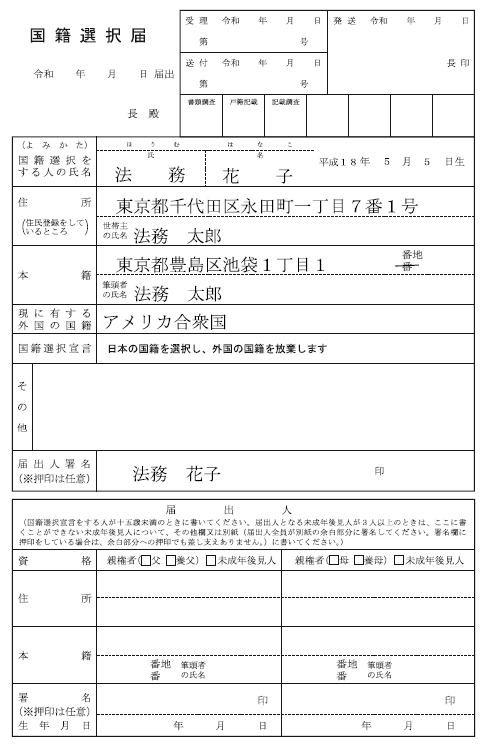 国籍選択届
令和　　年　　月　　日 届出
長 殿
受 理　令和　　年　　月　　日
第　　　　　　　　号
発 送　令和　　年　　月　　日
送 付　令和　　年　　月　　日
第　　　　　　　　号
長 印
書類調査　戸籍記載　記載調査
（よ み か た）　ほ う む　は な こ
国籍選択をする人の氏名
氏　名
法 務　花 子
平成１８年　５　月　５　日生
住 所
（住民登録をしているところ）
東京都千代田区永田町一丁目７番１号
世帯主の氏名
法務　太郎
本 籍
東京都豊島区池袋１丁目１
番地
番
筆頭者の氏名
法務　太郎
現に有する外国の国籍
アメリカ合衆国
国籍選択宣言
日本の国籍を選択し、外国の国籍を放棄します
その他
届出人署名
（※押印は任意）
法務　花子
印
届 出 人
（国籍選択宣言をする人が十五歳未満のときに書いてください。届出人となる未成年後見人が３人以上のときは、ここに書
くことができない未成年後見人について、その他欄又は別紙（届出人全員が別紙の余白部分に署名してください。署名欄に
押印をしている場合は、余白部分への押印でも差し支えありません。）に書いてください。）
資 格　親権者（□父 □養父）□未成年後見人　親権者（□母 □養母）□未成年後見人
住 所
本 籍
番地　筆頭者　番地　筆頭者
番　の氏名　番　の氏名
署 名
（※押印は任意）
印　印
生 年 月 日　年　月　日　年　月　日